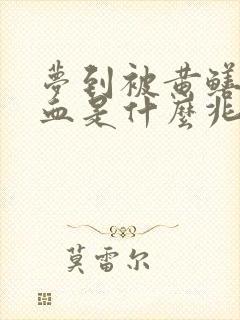 夢到被黄鳝
血是什麼兆
莫雷尔